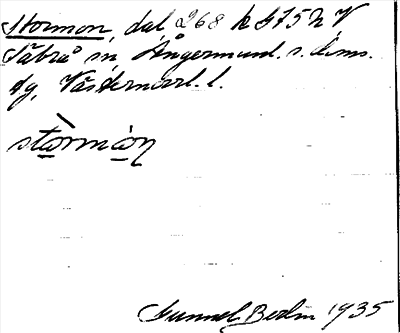 Stormon, dal 268 k G75h V
Säbrå sn, Ångermanl. s. doms.
dg, Västernorrl. l.
stòrmòn
Gunnel Berlin 1935